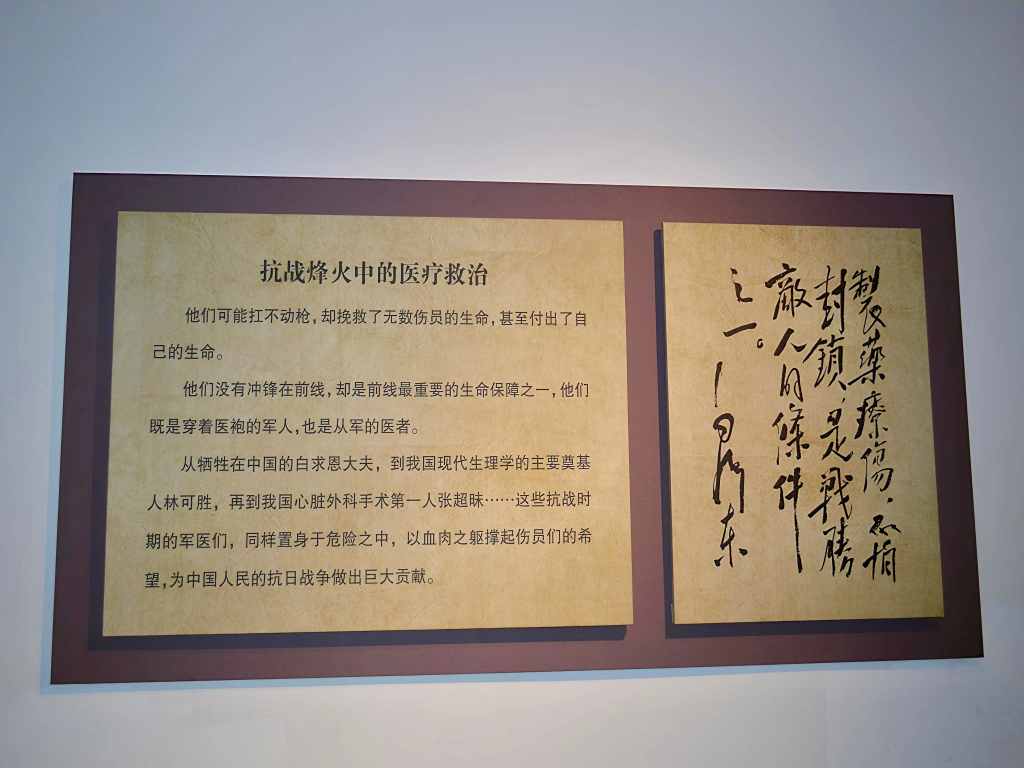 抗战烽火中的医疗救治
他们可能扛不动枪，却挽救了无数伤员的生命，甚至付出了自
己的生命。
他们没有冲锋在前线，却是前线最重要的生命保障之一，他们
既是穿着医袍的军人，也是从军的医者。
从牺牲在中国的白求恩大夫，到我国现代生理学的主要奠基
人林可胜，再到我国心脏外科手术第一人张超昧……这些抗战时
期的军医们，同样置身于危险之中，以血肉之躯撑起伤员们的希
望，为中国人民的抗日战争做出巨大贡献。
製藥療傷，不怕
封鎖，是戰勝
敵人的條件
之一。
毛澤东